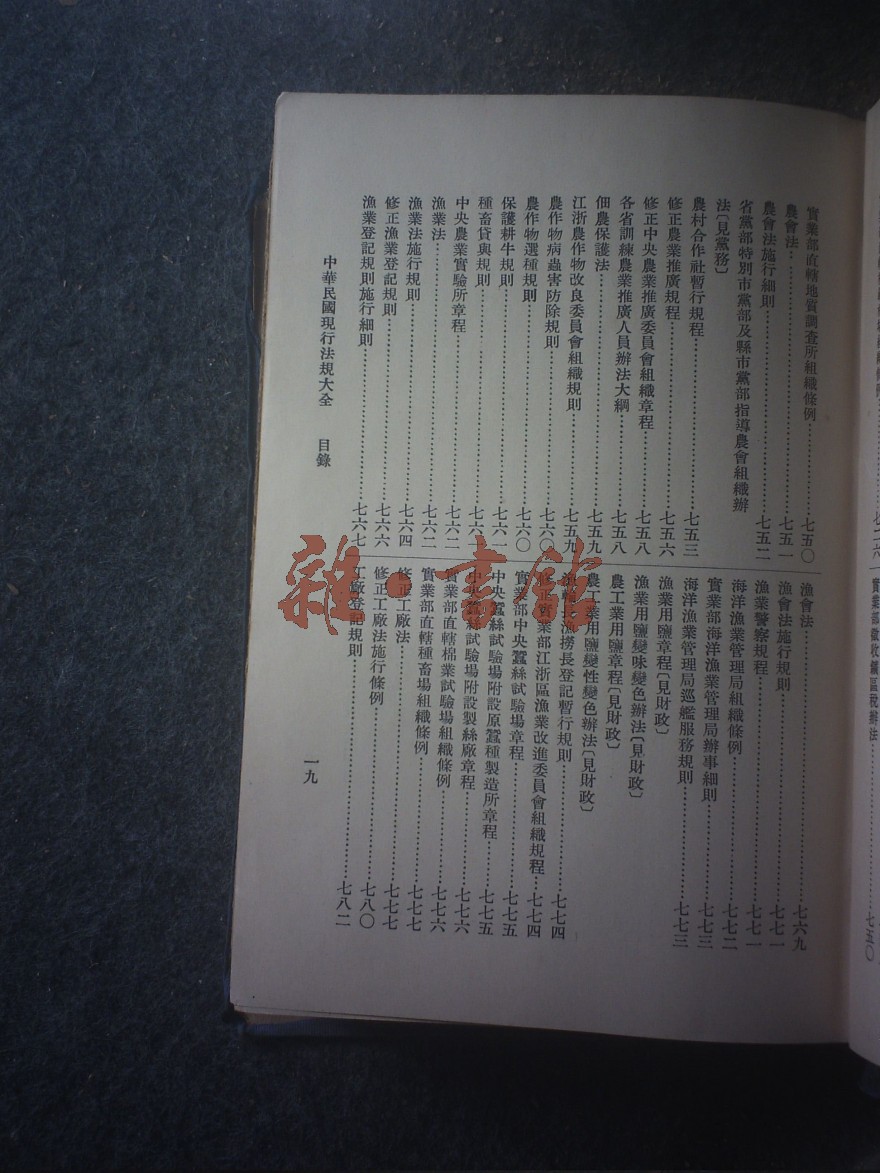 實業部直轄地質調查所組織條例……七五〇
農會法……七五一
農會法施行細則……七五二
省黨部特別市黨部及縣市黨部指導農會組織辦
法〔見黨務〕
農村合作社暫行規程……七五三
修正農業推廣規程……七五六
修正中央農業推廣委員會組織章程……七五八
各省訓練農業推廣人員辦法大綱……七五八
佃農保護法……七五九
江浙農作物改良委員會組織規則……七五九
農作物病蟲害防除規則……七六〇
農作物選種規則……七六〇
保護耕牛規則……七六一
種畜貸與規則……七六一
中央農業實驗所章程……七六二
漁業法……七六二
漁業法施行規則……七六四
修正漁業登記規則……七六六
漁業登記規則施行細則……七六七
漁會法……七六九
漁會法施行規則……七七一
漁業警察規程……七七一
海洋漁業管理局組織條例……七七二
實業部海洋漁業管理局辦事細則……七七三
海洋漁業管理局巡艦服務規則……七七三
漁業用鹽章程〔見財政〕
漁業用鹽變味變色辦法〔見財政〕
農工業用鹽章程〔見財政〕
農工業用鹽變性變色辦法〔見財政〕
漁輪長漁撈長登記暫行規則……七七四
修正實業部江浙區漁業改進委員會組織規程……七七四
實業部中央蠶絲試驗場章程……七七五
中央蠶絲試驗場附設原蠶種製造所章程……七七五
中央蠶絲試驗場附設製絲廠章程……七七六
實業部直轄棉業試驗場組織條例……七七六
實業部直轄種畜場組織條例……七七七
修正工廠法……七七七
修正工廠法施行條例……七八〇
工廠登記規則……七八二
中華民國現行法規大全 目錄
一九
雜·書館
實業部徵收鑛區稅辦法……七五〇